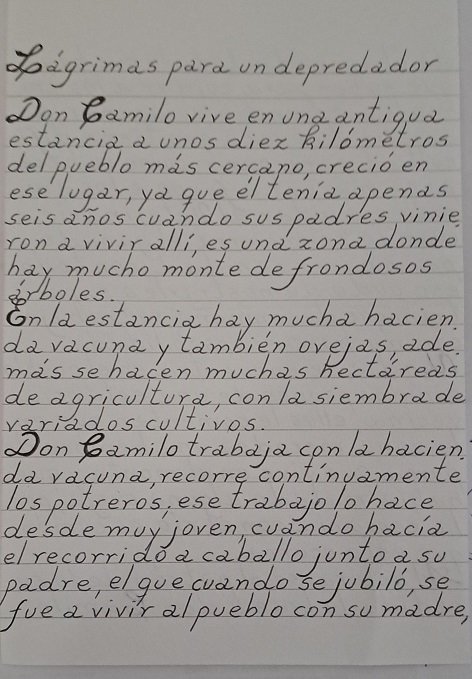 Lágrimas para un depredador
Don Camilo vive en una antigua
estancia a unos diez kilómetros
del pueblo más cercano, creció en
ese lugar, ya que él tenía apenas
seis años cuando sus padres vinie.
ron a vivir allí, es una zona donde
hay mucho monte de frondosos
árboles.
En la estancia hay mucha hacien.
da vacuna y también ovejas, ade.
más se hacen muchas hectáreas
de agricultura, con la siembra de
variados cultivos.
Don Camilo trabaja con la hacien.
da vacuna, recorre contínuamente
los potreros, ese trabajo lo hace
desde muy joven, cuando hacía
el recorrido a caballo junto a su
padre, el que cuando se jubiló, se
fue a vivir al pueblo con su madre,